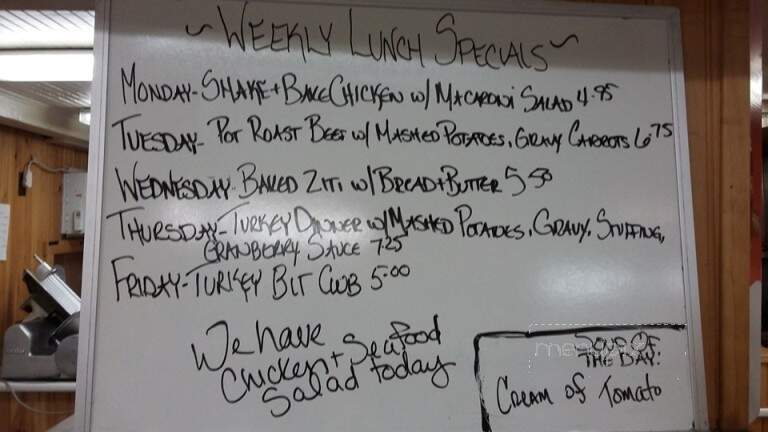 ~ Weekly Lunch Specials ~
Monday - Shake + Bake Chicken w/ Macaroni Salad 4.95
Tuesday - Pot Roast Beef w/ Mashed Potatoes, Gravy Carrots 6.75
Wednesday - Baked Ziti w/ Bread + Butter 5.50
Thursday - Turkey Dinner w/ Mashed Potatoes, Gravy, Stuffing,
Cranberry Sauce 7.25
Friday - Turkey BLT Club 5.00
We have
Chicken + Seafood
Salad today
Soup Of
The Day:
Cream of Tomato